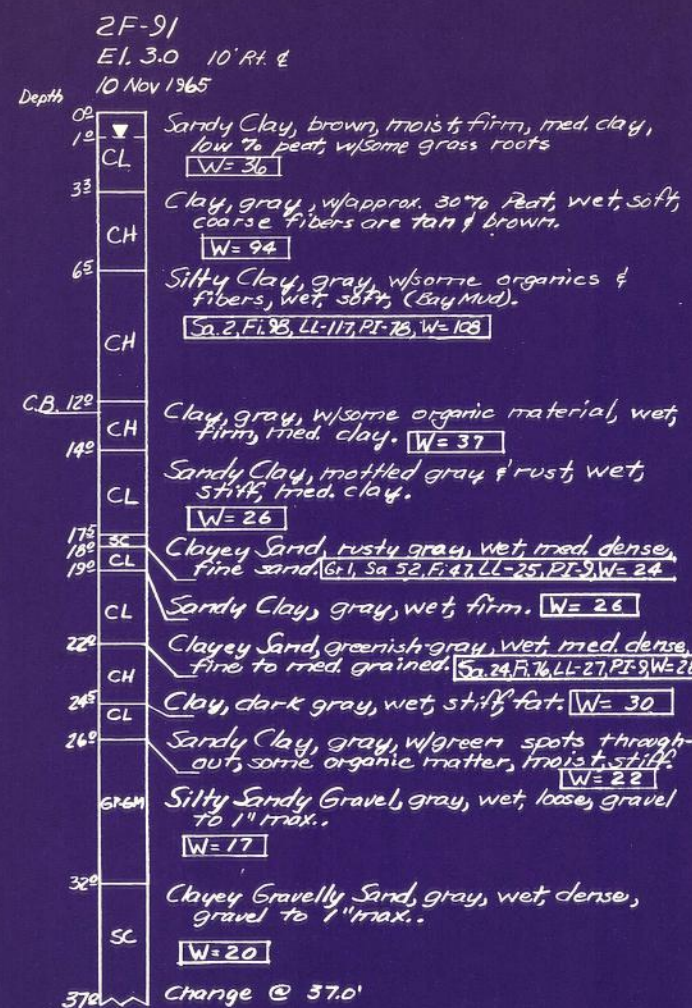 2F-91
El. 3.0 10' Rt. ⅊
10 Nov 1965
Depth
0⁰
1⁰
CL
Sandy Clay, brown, moist, firm, med. clay,
low % peat, w/some grass roots
W= 36
3³
CH
Clay, gray, w/approx. 30% Peat, wet, soft,
coarse fibers are tan & brown.
W= 94
6⁵
CH
Silty Clay, gray, w/some organics &
fibers, wet, soft, (Bay Mud).
Sa. 2, Fi. 98, LL-117, PI-78, W= 108
C.B. 12⁰
CH
Clay, gray, w/some organic material, wet,
firm, med. clay. W= 37
14⁰
CL
Sandy Clay, mottled gray & rust, wet,
stiff, med. clay.
W= 26
17⁵
SC
Clayey Sand, rusty gray, wet, med. dense,
fine sand. Gr1, Sa 52, Fi 47, LL-25, PI-9, W= 24
18⁰
CL
19⁰
Sandy Clay, gray, wet, firm. W= 26
CL
22⁰
Clayey Sand, greenish-gray, wet, med. dense,
fine to med. grained. Sa. 24, Fi. 76, LL-27, PI-9, W=28
CH
24⁵
Clay, dark gray, wet, stiff, fat. W= 30
CL
26⁰
Sandy Clay, gray, w/green spots through-
out, some organic matter, moist, stiff.
W= 22
GP-GM
Silty Sandy Gravel, gray, wet, loose, gravel
to 1" max..
W= 17
32⁰
SC
Clayey Gravelly Sand, gray, wet, dense,
gravel to 1" max..
W=20
37⁰
Change @ 37.0'